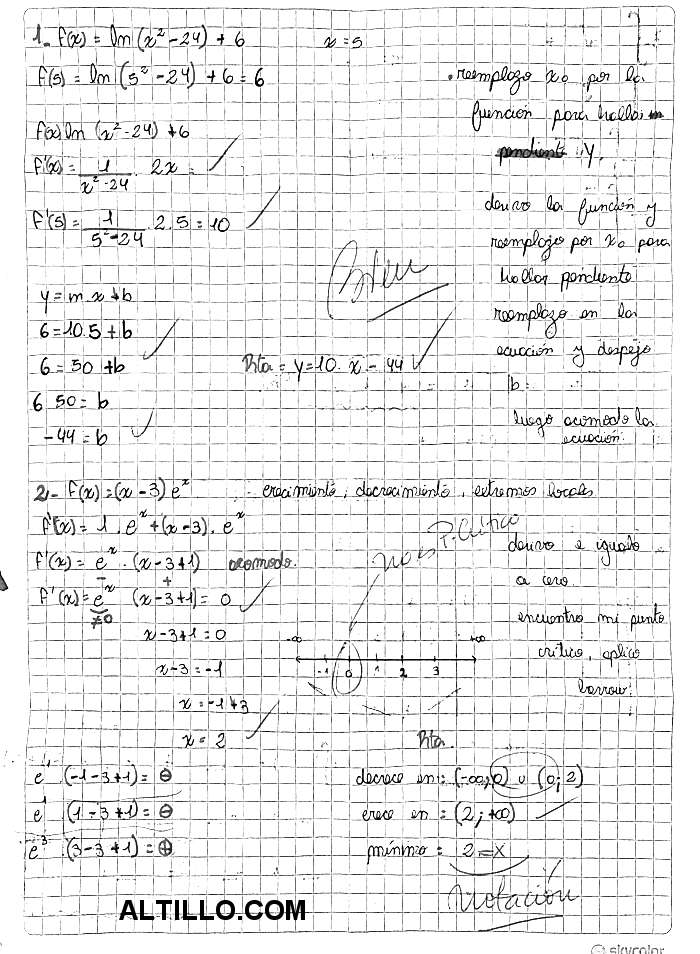 1- f(x) = ln(x² - 24) + 6     x = 5
f(5) = ln (5² - 24) + 6 = 6
• reemplazo x₀ por la
función para hallar
Y.
f(x) ln (x² - 24) + 6
f'(x) = 1/(x² - 24) . 2x =
f'(5) = 1/(5² - 24) . 2 . 5 = 10
derivo la función y
reemplazo por x₀ para
hallar pendiente
reemplazo en la
ecuación y despejo
b.
luego acomodo la
ecuación.
Bien
y = m . x + b
6 = 10 . 5 + b
6 = 50 + b
Rta = y = 10 . x - 44
6 50 = b
-44 = b
2- f(x) = (x - 3) eˣ     crecimiento, decrecimiento, extremos locales
f'(x) = 1 . eˣ + (x - 3) . eˣ
f'(x) = eˣ . (x - 3 + 1) acomodo.
f'(x) = eˣ (x - 3 + 1) = 0
≠0
no es P. Crítico
derivo e igualo
a cero.
encuentro mi punto
crítico, aplico
x - 3 + 1 = 0
x - 3 = -1
x = -1 + 3
x = 2
-∞ +∞
-1 0 1 2 3
e⁻¹ (-1 - 3 + 1) = ⊖
e¹ (1 - 3 + 1) = ⊖
e³ (3 - 3 + 1) = ⊕
Rta.
decrece en : (-∞; 0) ∪ (0; 2)
crece en : (2; +∞)
mínimo : 2 = x
notación
ALTILLO.COM
skycolor